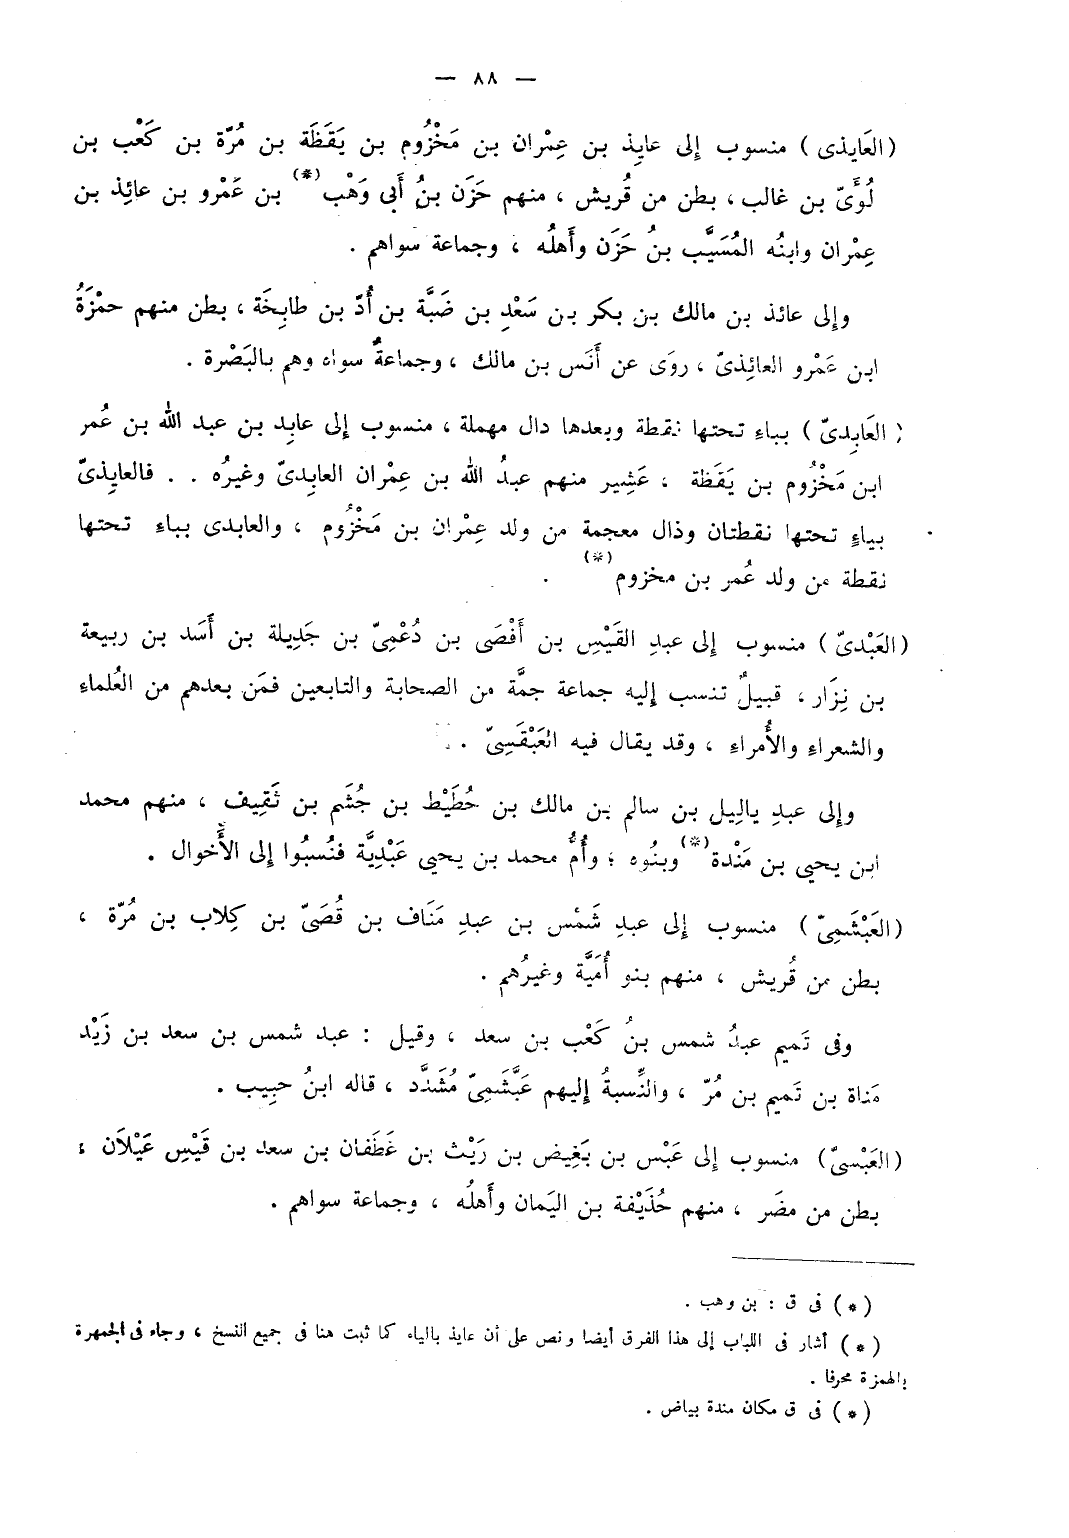 — ٨٨ —
(العَايذى) منسوب إلى عايِذ بن عِمْران بن مَخْزُوم بن يَقَظَة بن مُرّة بن كَعْب بن
لُؤَىّ بن غالب ، بطن من قُريش ، منهم حَزَن بنُ أَبى وَهْب(*) بن عَمْرو بن عائِذ بن
عِمْران وابنُه المُسَيَّب بنُ حَزَن وأَهلُه ، وجماعة سواهم .
وإلى عائذ بن مالك بن بكر بن سَعْدِ بن ضَبَّة بن أُدّ بن طابِخَة ، بطن منهم حمْزَةُ
ابن عَمْرو العائِذىّ ، روَى عن أَنَس بن مالك ، وجماعةٌ سواه وهم بالبَصْرة .
(العَابِدىّ) بباءِ تحتها نقطة وبعدها دال مهملة ، منسوب إلى عابِد بن عبد الله بن عُمر
ابن مَخْزُوم بن يَقَظة ، عَشِير منهم عبدُ الله بن عِمْران العابِدىّ وغيرُه . . فالعايِذىّ
بياءٍ تحتها نقطتان وذال معجمة من ولد عِمْران بن مَخْزُوم ، والعابدى بباءِ تحتها
نقطة من ولد عُمر بن مخزوم(*) .
(العَبْدىّ) منسوب إلى عبدِ القَيْسِ بن أَفْصَى بن دُعْمِىّ بن جَدِيلة بن أَسَد بن ربيعة
بن نِزَار ، قبيلٌ تنسب إليه جماعة جمَّة من الصحابة والتابعين فمَن بعدهم من العُلماءِ
والشعراءِ والأُمراءِ ، وقد يقال فيه العَبْقَسِىّ .
وإلى عبدِ يالِيل بن سالم بن مالك بن حُطَيْط بن جُشَم بن ثَقِيف ، منهم محمد
ابن يحيى بن مَنْدة(*) وبنُوه ؛ وأُمُّ محمد بن يحيى عَبْدِيَّة فنُسبُوا إلى الأَخوال .
(العَبْشَمِىّ) منسوب إلى عبدِ شَمْس بن عبدِ مَنَاف بن قُصَىّ بن كِلاب بن مُرّة ،
بطن من قُريش ، منهم بنو أُمَيَّة وغيرُهم .
وفى تَميم عبدُ شمس بنُ كَعْب بن سعد ، وقيل : عبد شمس بن سعد بن زَيْد
مَناة بن تَميم بن مُرّ ، والنِّسبةُ إليهم عَبَّشَمِىّ مُشَدَّد ، قاله ابنُ حبِيب .
(العَبْسىّ) منسوب إلى عَبْس بن بَغِيض بن رَيْث بن غَطَفان بن سعد بن قَيْسِ عَيْلَان ،
بطن من مضَر ، منهم حُذَيْفة بن اليَمان وأَهلُه ، وجماعة سواهم .
(*) فى ق : بن وهب .
(*) أشار فى اللباب إلى هذا الفرق أيضا ونص على أن عايذ بالياء كما ثبت هنا فى جميع النسخ ، وجاء فى الجمهرة
بالهمزة محرفا .
(*) فى ق مكان مندة بياض .